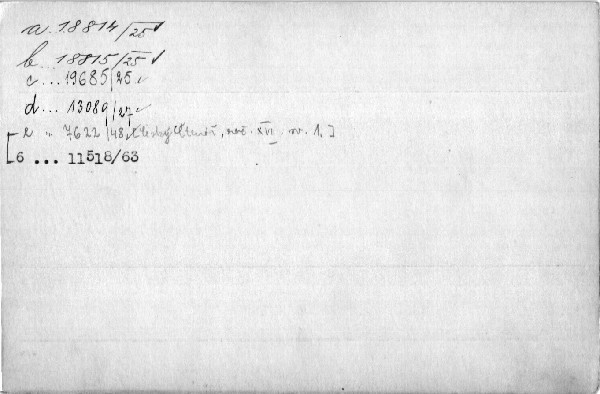 a. 18814/25 ✓
b. 18815/25 ✓
c... 19685/25 ✓
d... 13089/27 ✓
[e „ 7622/48, roč. XVI. nr. 1.]
[6 ... 11518/63